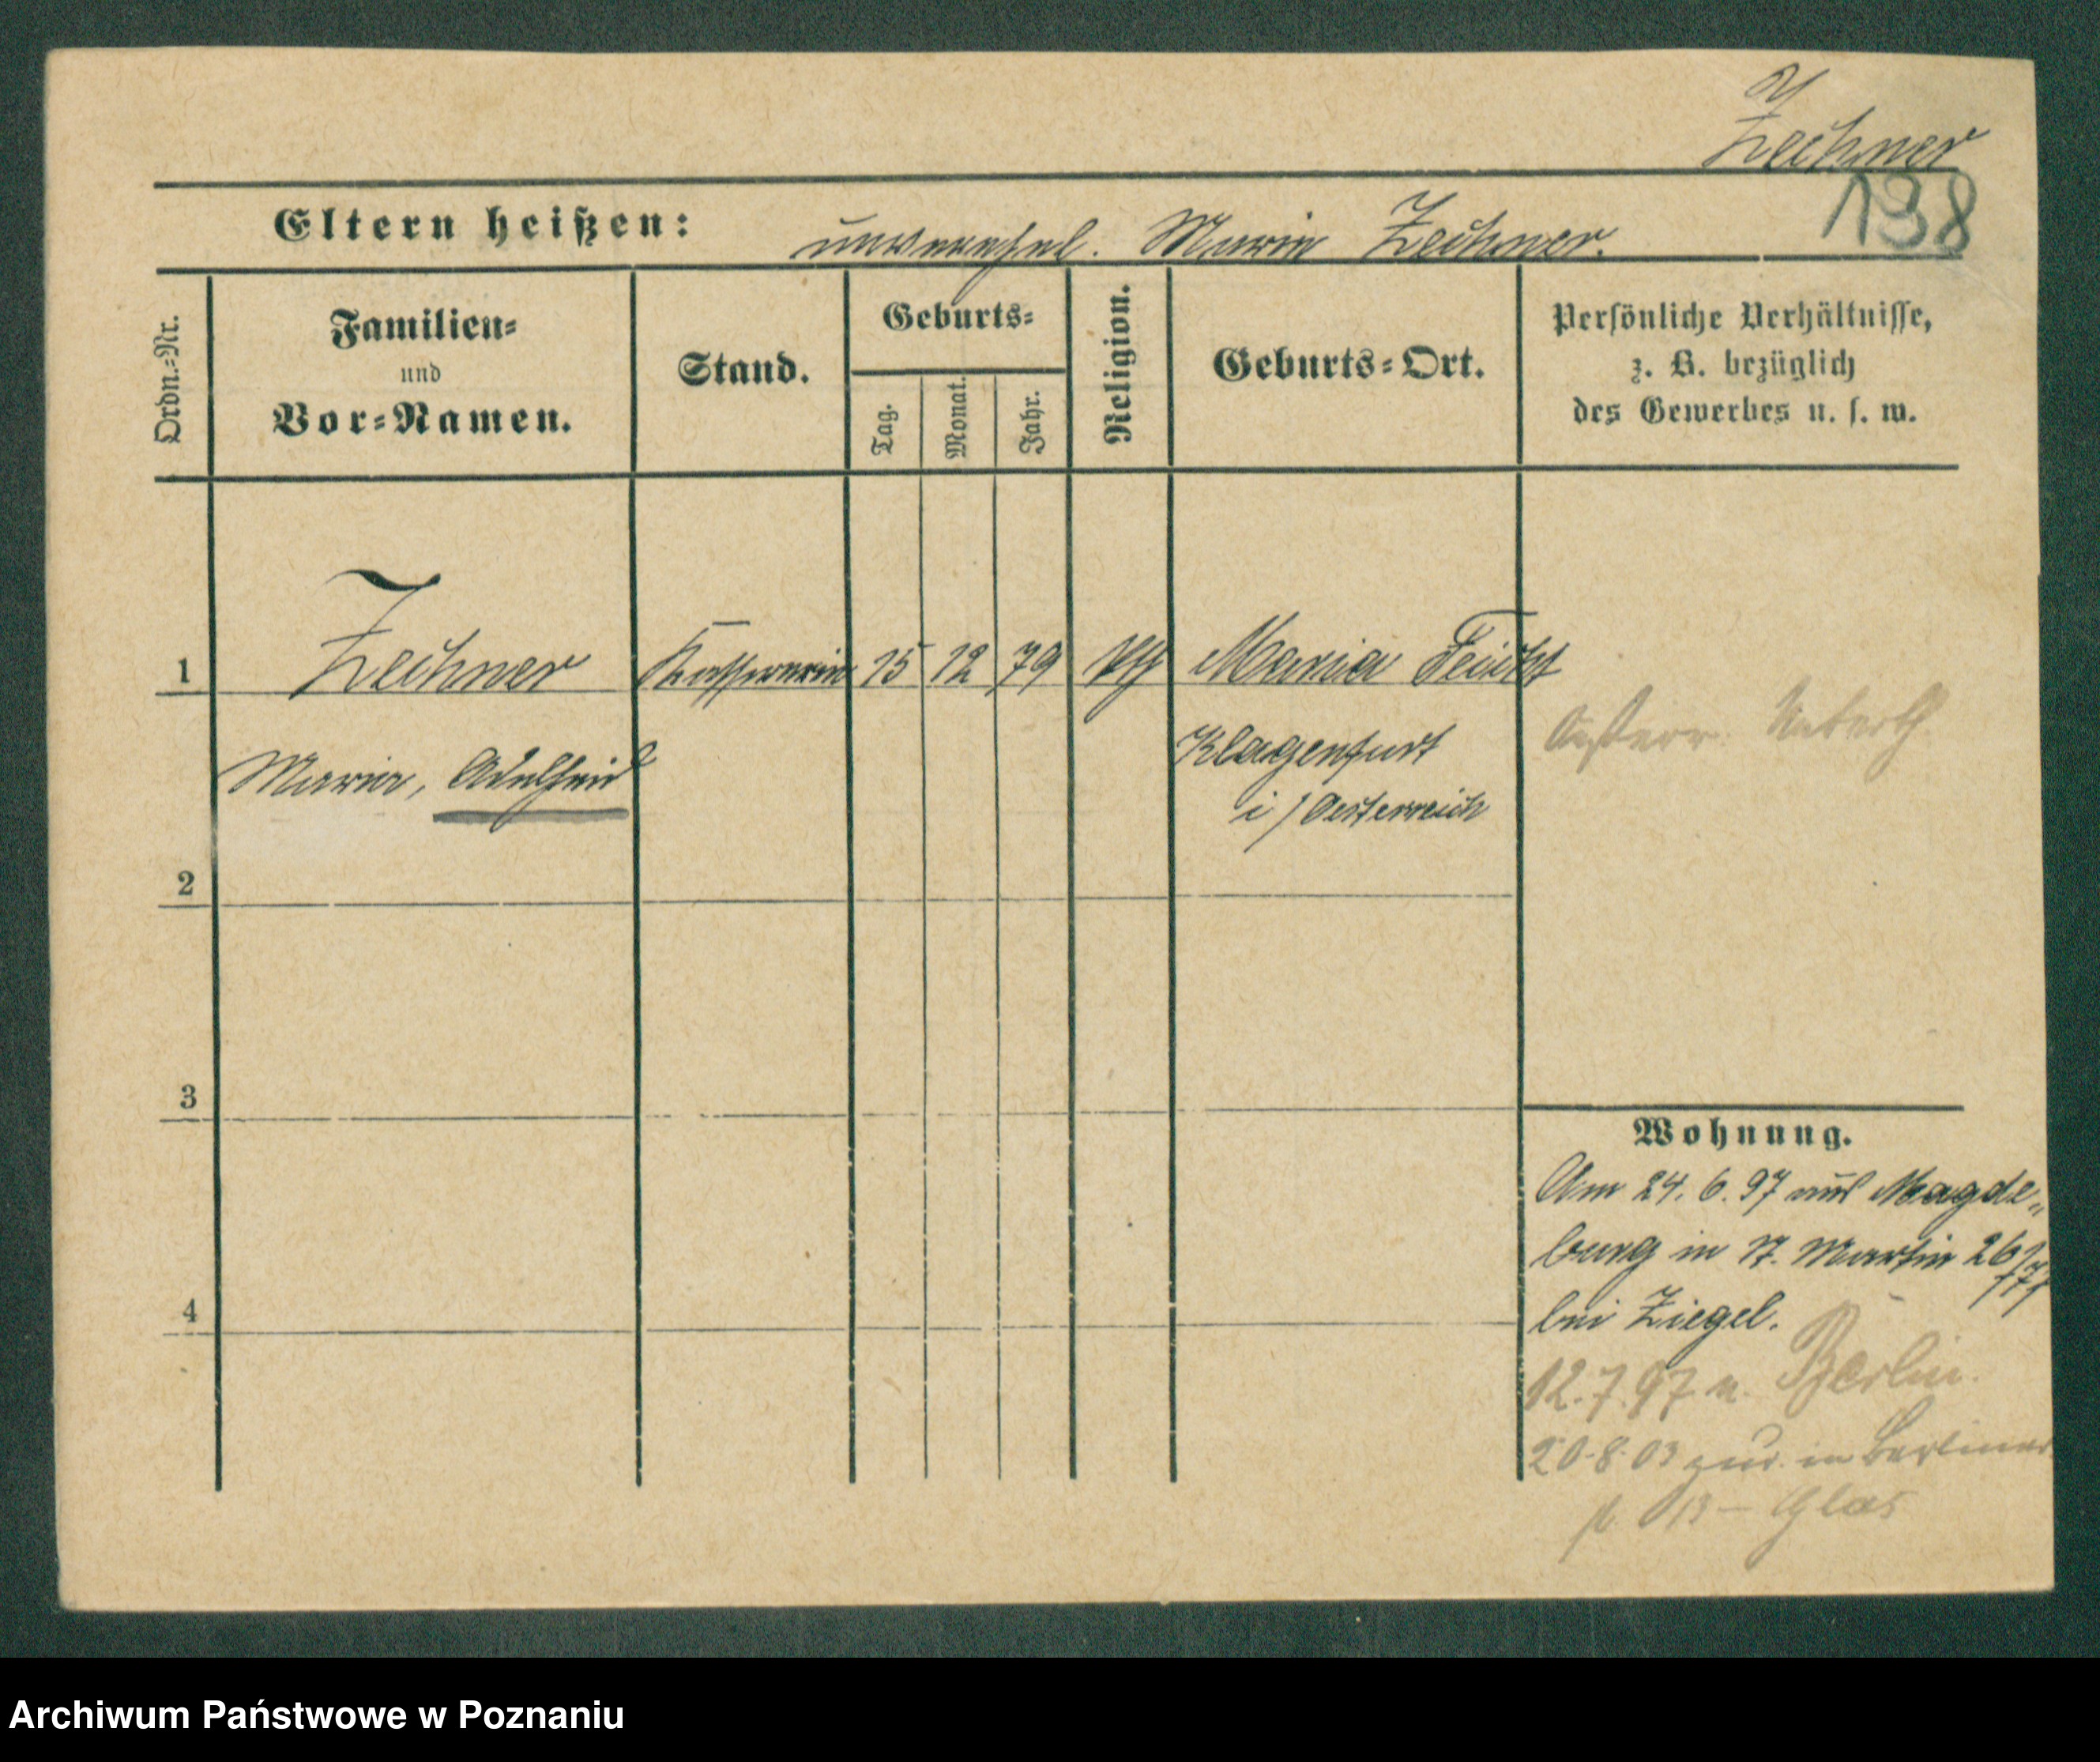 Zechner
138
Eltern heißen: unverehel. Marie Zechner.
Ordn.=Nr.
Familien=
und
Vor=Namen.
Stand.
Geburts=
Tag.
Monat.
Jahr.
Religion.
Geburts=Ort.
Persönliche Verhältnisse,
z. B. bezüglich
des Gewerbes u. s. w.
1 Zechner 15 12 79 kth Maria Feicht
Maria, Adelheid
Klagenfurt
i/Oesterreich
Oesterr.
2
3
4
Wohnung.
Am 24. 6. 97 aus Magde„
burg in St. Martin 26
bei Ziegel.
12.7.97 n. Berlin.
20.8.03 zur. in Berliner
Glas
Archiwum Państwowe w Poznaniu